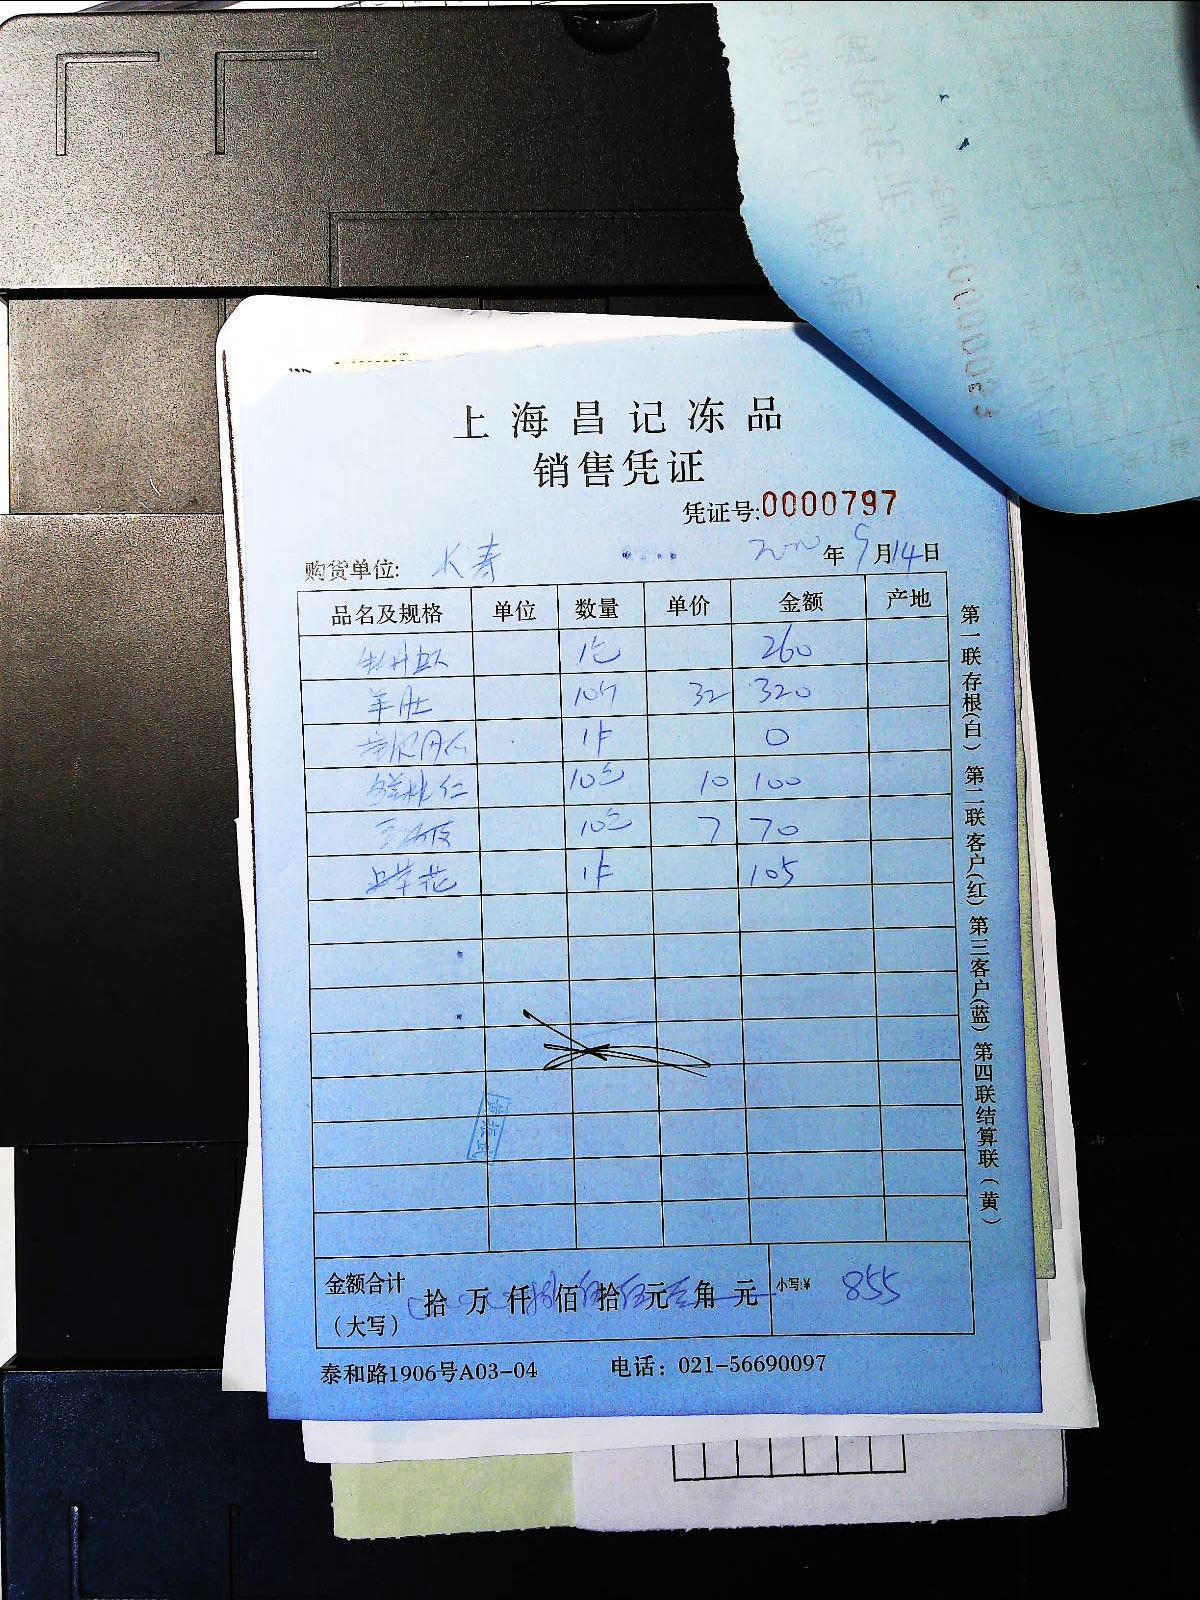 上海昌记冻品
销售凭证
凭证号:0000797
购货单位: 长寿 年 9月14日
品名及规格 单位 数量 单价 金额 产地
1包 260
羊肚 10斤 32 320
1件 0
鲜桃仁 10包 10 100
10包 7 70
虫草花 1件 105
金额合计
(大写) 拾 万 仟 捌佰伍拾伍元 角 元 小写:¥ 855
泰和路1906号A03-04 电话: 021-56690097
第一联存根(白) 第二联客户(红) 第三客户(蓝) 第四联结算联(黄)